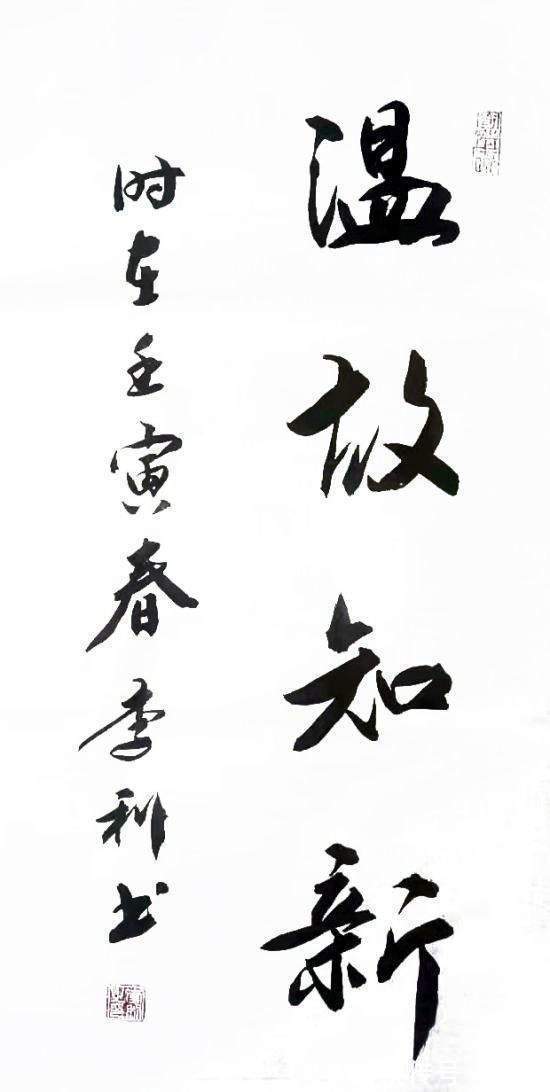 温故知新
时在壬寅春李利书